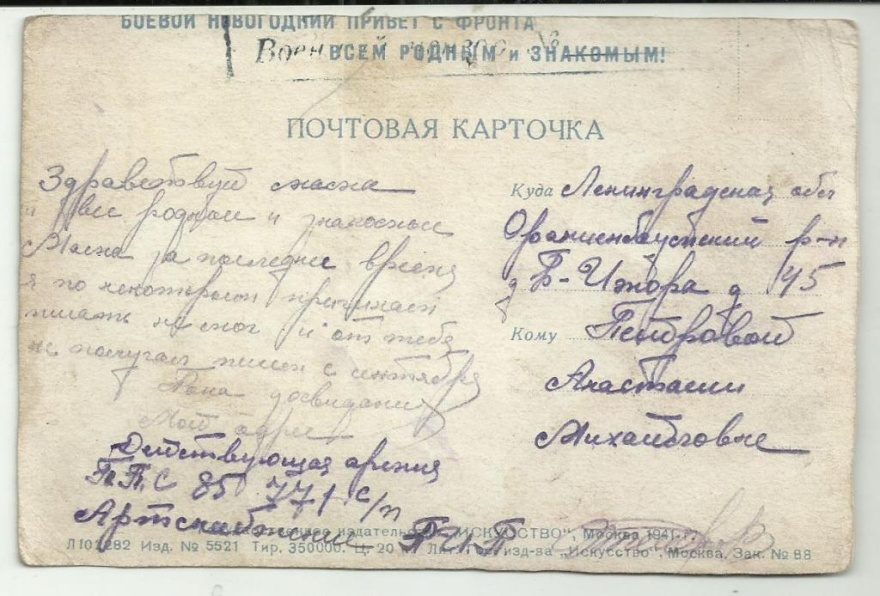 БОЕВОЙ НОВОГОДНИЙ ПРИВЕТ С ФРОНТА
ВСЕМ РОДНЫМ и ЗНАКОМЫМ!
ПОЧТОВАЯ КАРТОЧКА
Здравствуй мама
и все родные и знакомые
Мама за последнее время
я по некоторым причинам
писать не мог и от тебя
не получал писем с сентября
Пока досвидания
Мой адрес
Действующая армия
П.П.С 85 771 с/п
Артснабжение П И П
Куда Ленинградская обл
Ораниенбаумский р-н
д Б-Ижора д 45
Кому Петровой
Анастасии
Михайловне
издательство "ИСКУССТВО", Москва 1941 г.
Л102282 Изд. № 5521 Тир. 350000. Ц. 20 изд-ва „Искусство", Москва, Зак. № 88